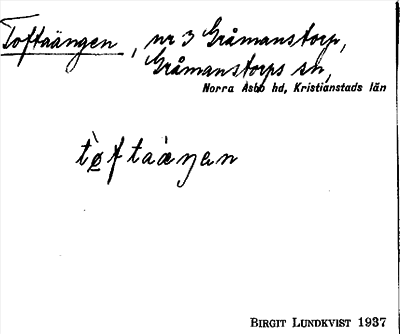 Toftaängen, nr 3 Gråmanstorp,
Gråmanstorps sn,
Norra Åsbo hd, Kristianstads län
tø̀ftaàŋən
BIRGIT LUNDKVIST 1937